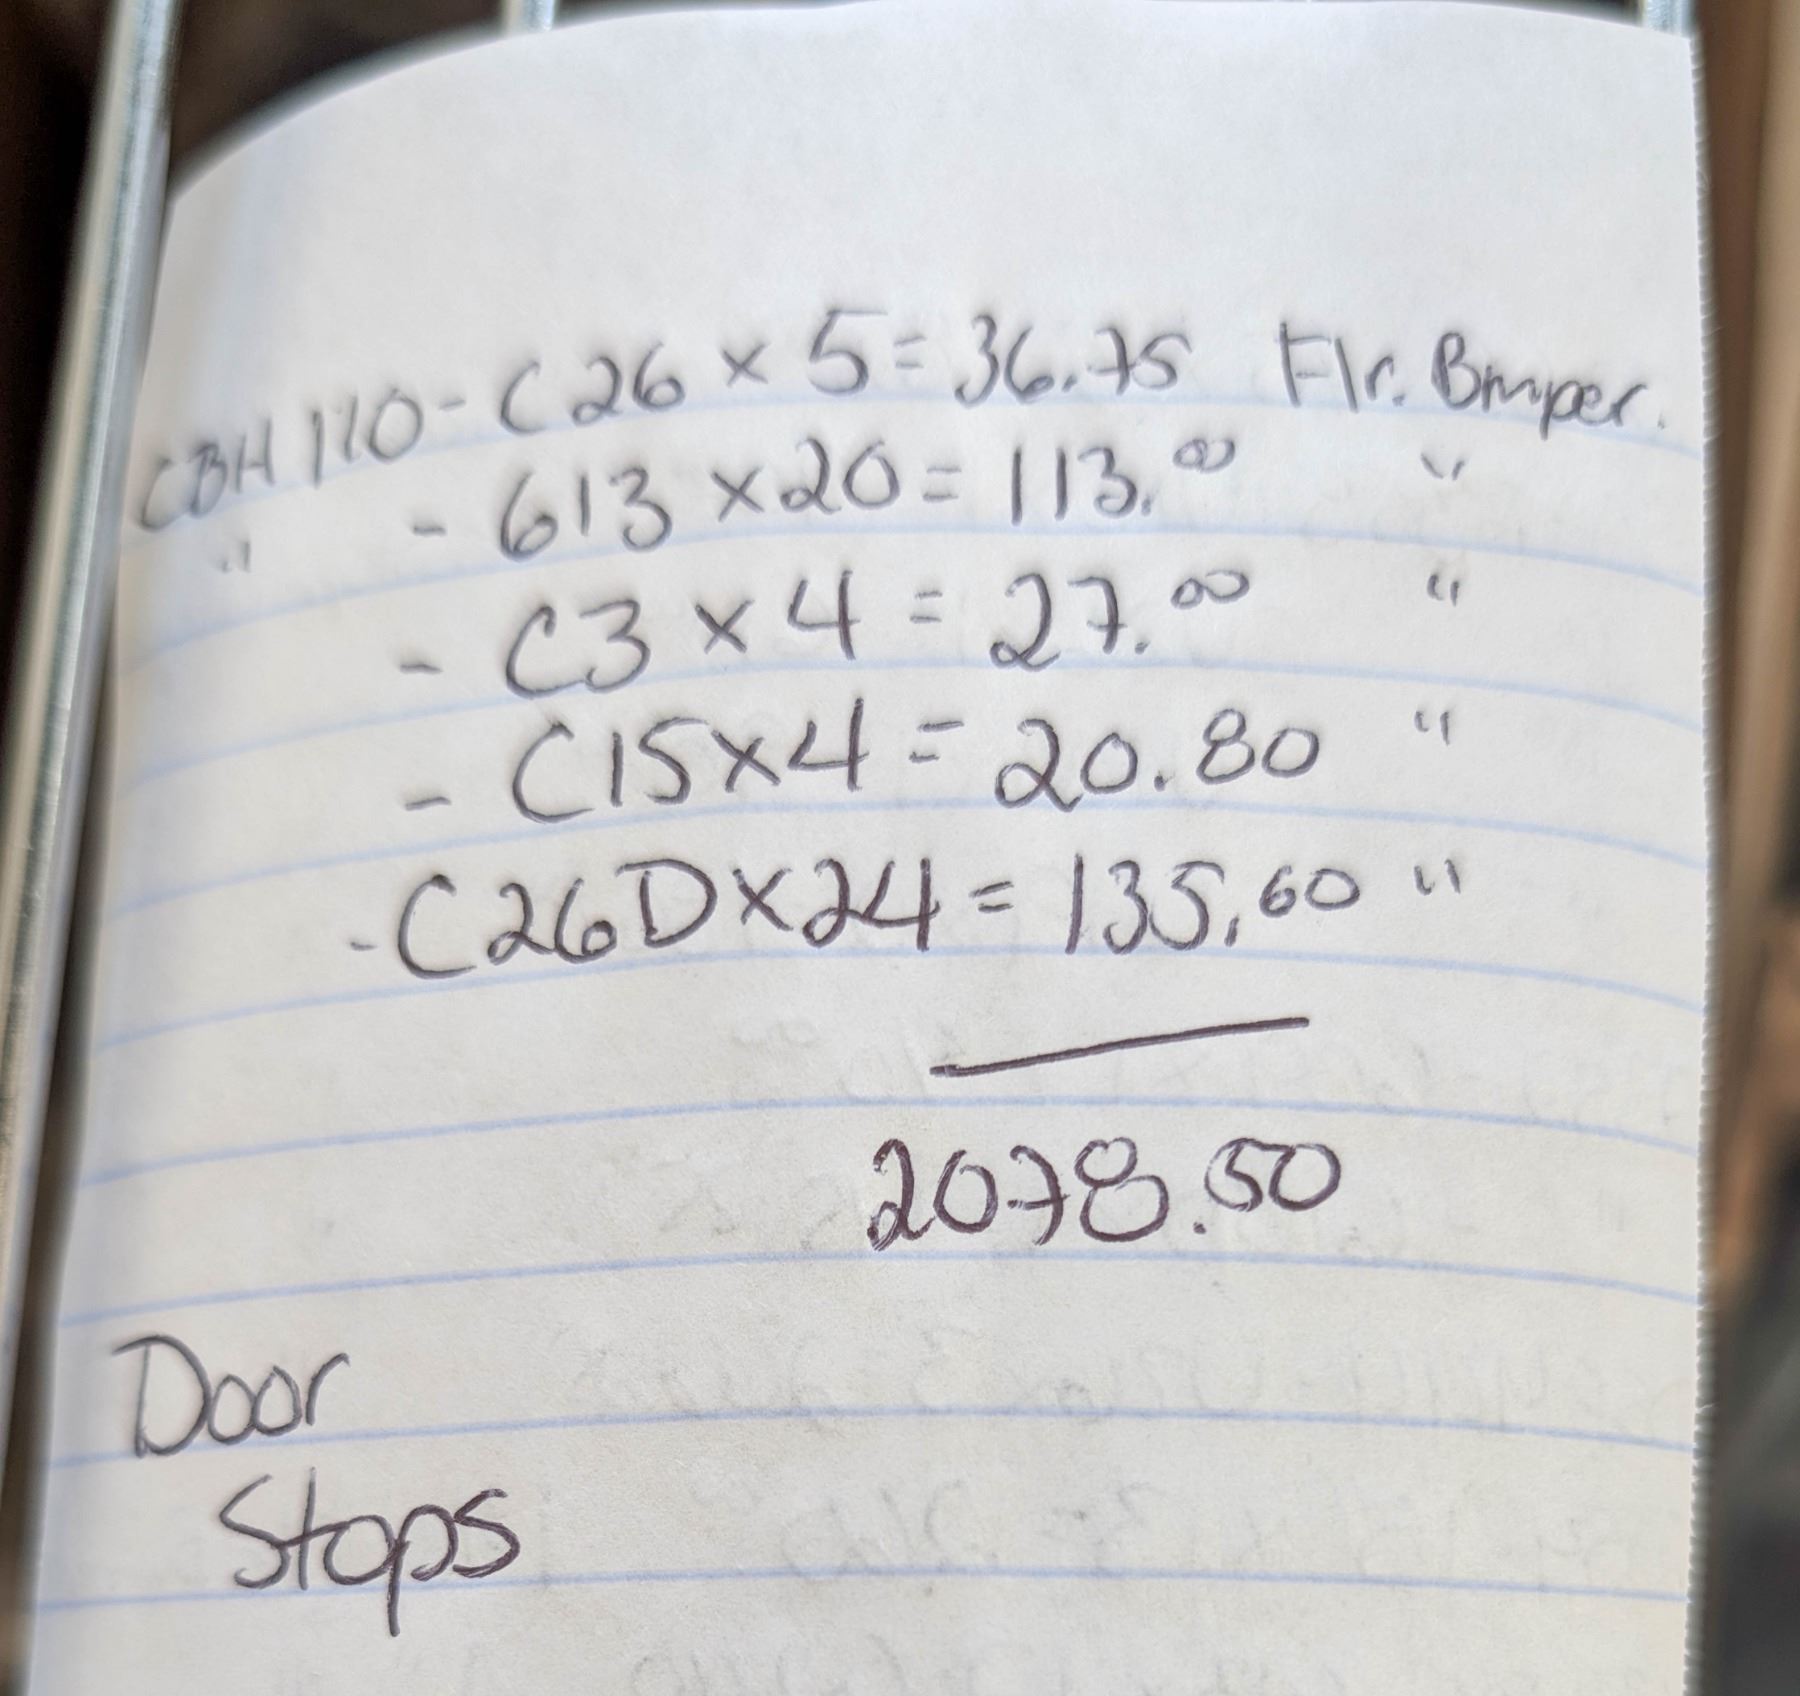 CBH 110 - C26 x 5 = 36.75 Flr. Bmper.
" - 613 x 20 = 113.00 "
- C3 x 4 = 27.00 "
- C15 x 4 = 20.80 "
- C26D x 24 = 135.60 "
2078.50
Door
Stops